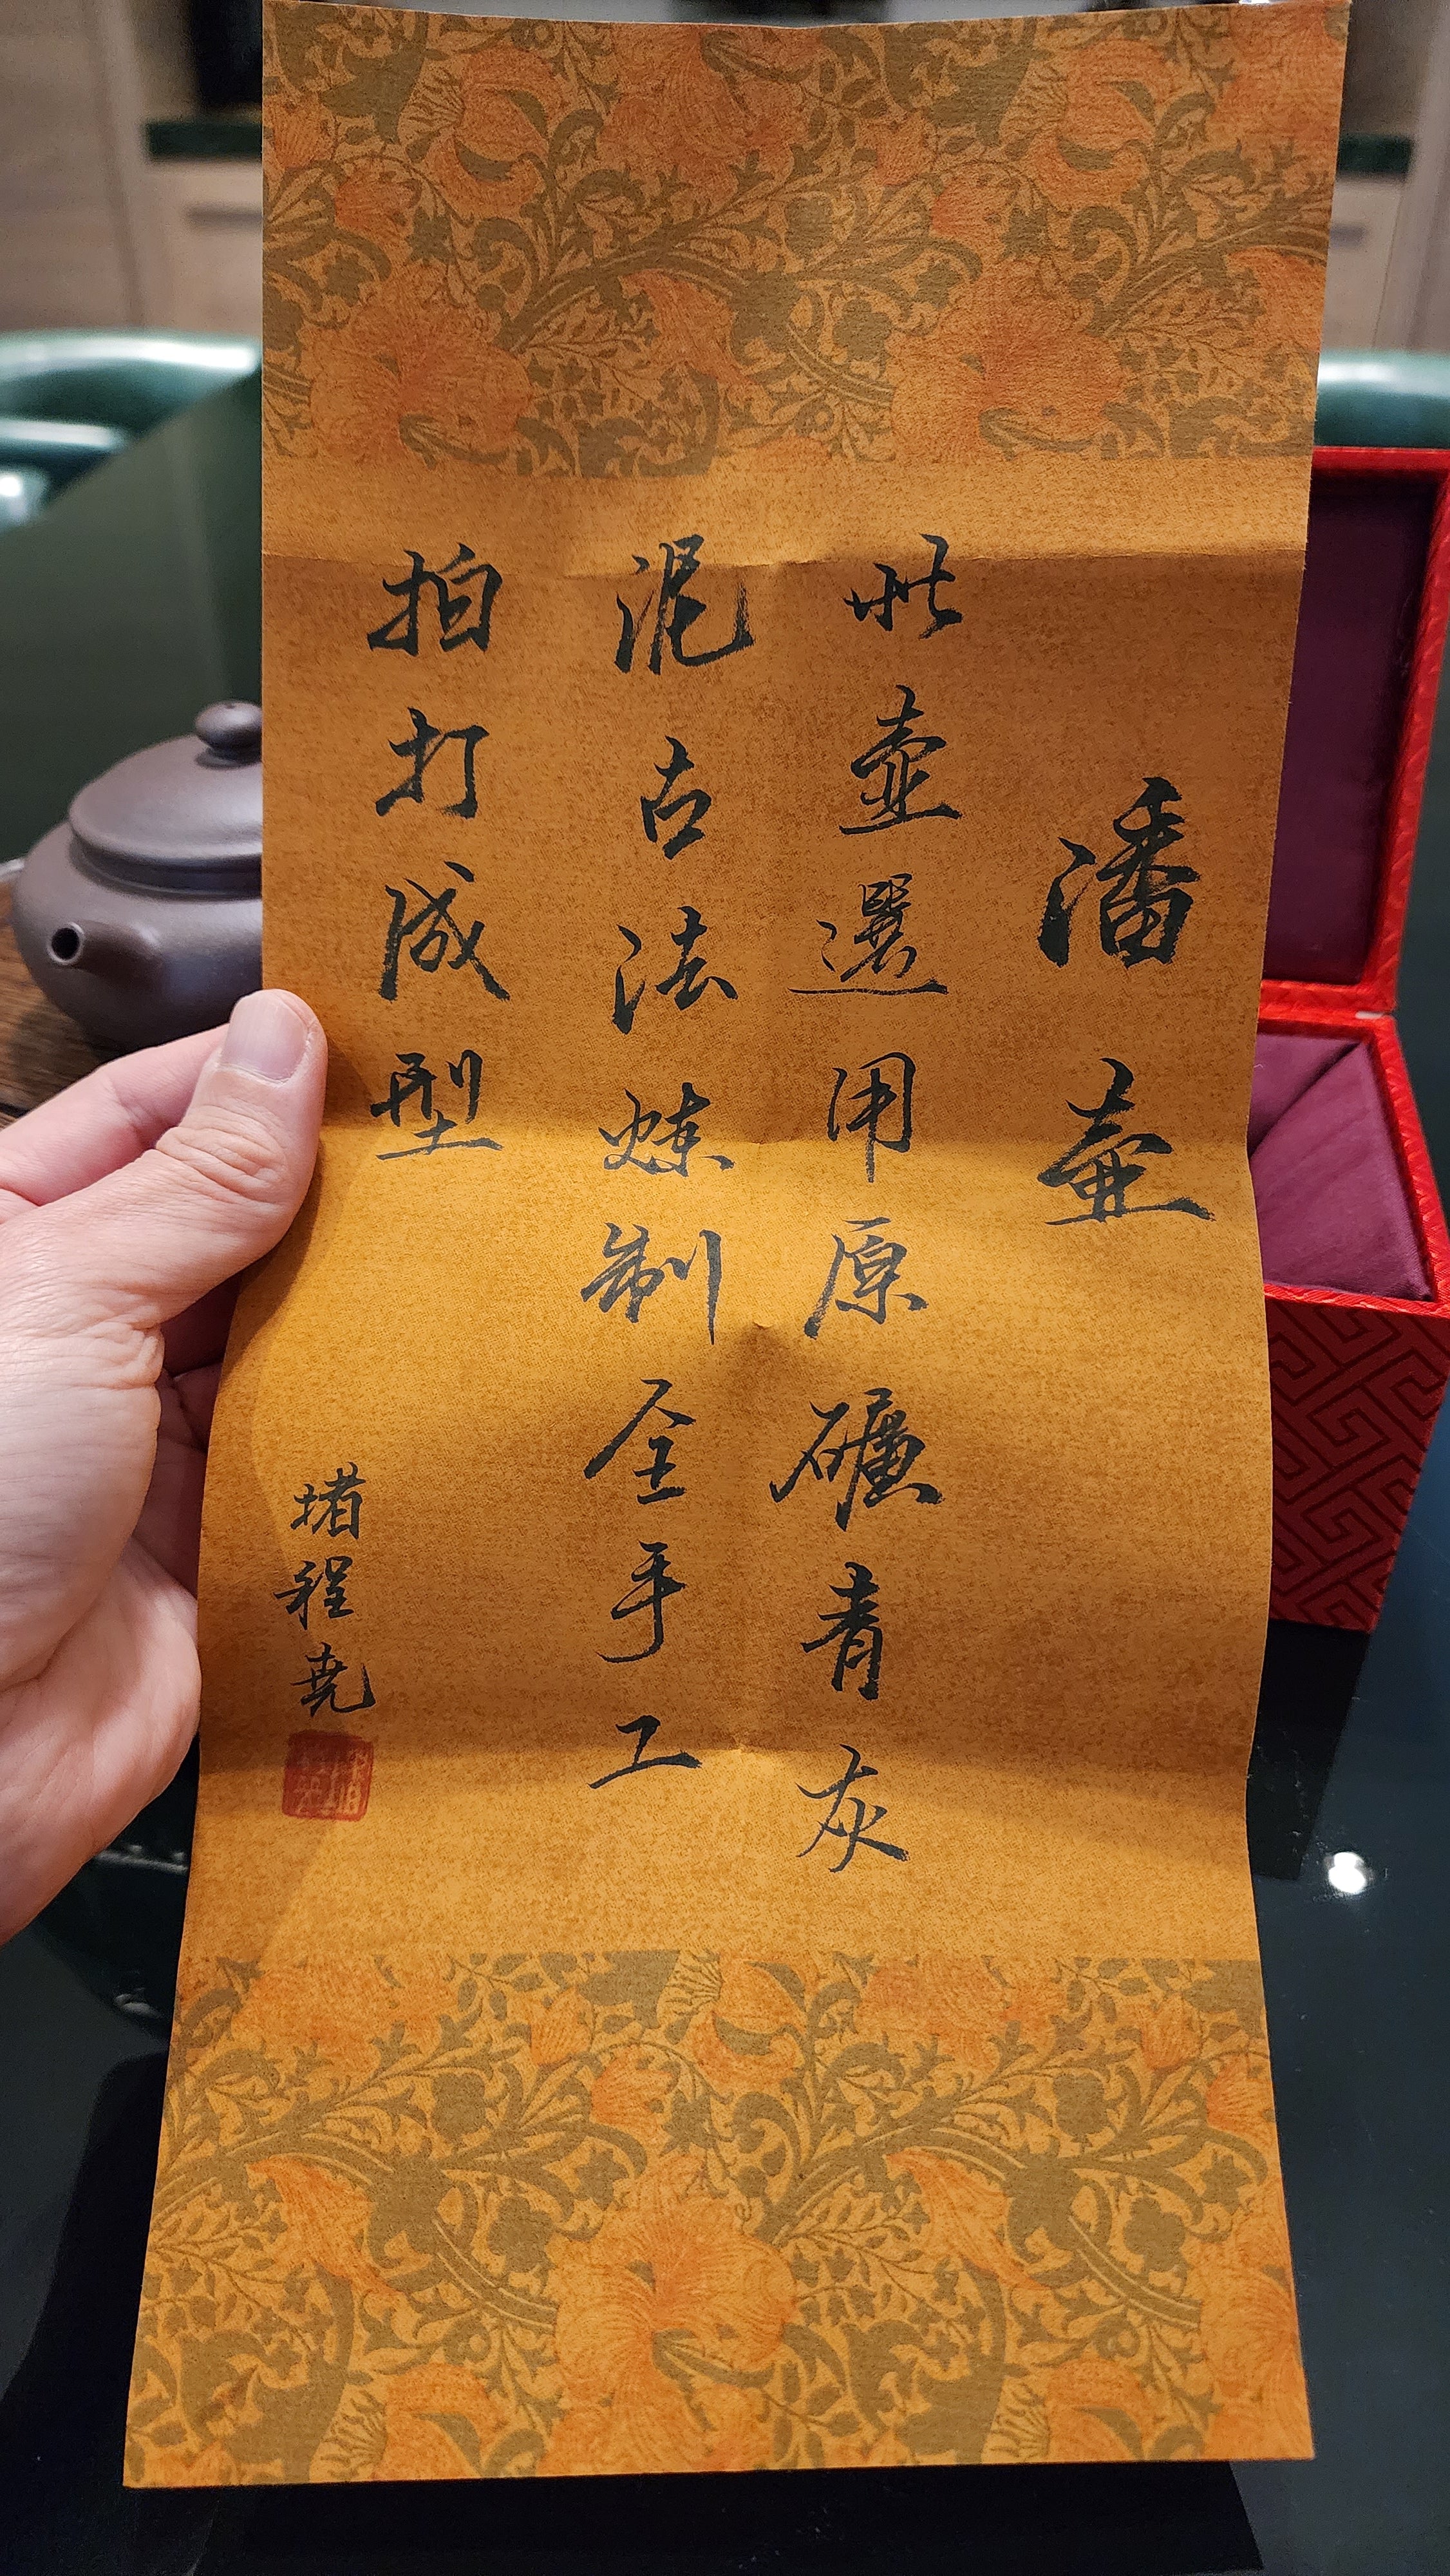 潘壺
此壺選用原礦青灰
泥古法煉制全手工
拍打成型
堵程堯